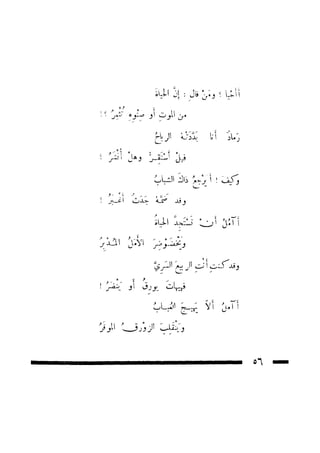 أأحيا ! ومَنْ قال : إنَّ الحياةَ
من الموتِ أو صِنْوِهِ تُنْشَرُ ؟!
رمادٌ أنا بَدَّدَتْهُ الرياحُ
فهلْ أستقِرُّ وهلْ أُنْشَرُ !
وكيف ! أيرْجِعُ ذاكَ الشبابُ
وقد ضمَّهُ جَدَثٌ أغْبَرُ !
أآمُلُ أنْ تَسْتَجِدَّ الحياةُ
ويَخْضَوْضِرَ الأمَلُ المُدْبِرُ
وقد كنتِ أنتِ الربيعَ السَرِيَّ
فهيهاتَ يورِقُ أو يَنْضُرُ !
أآمُلُ ألاَّ يَهيجَ العُبابُ
ويَنْقلِبَ الزورقُ الموقَرُ
٥٦